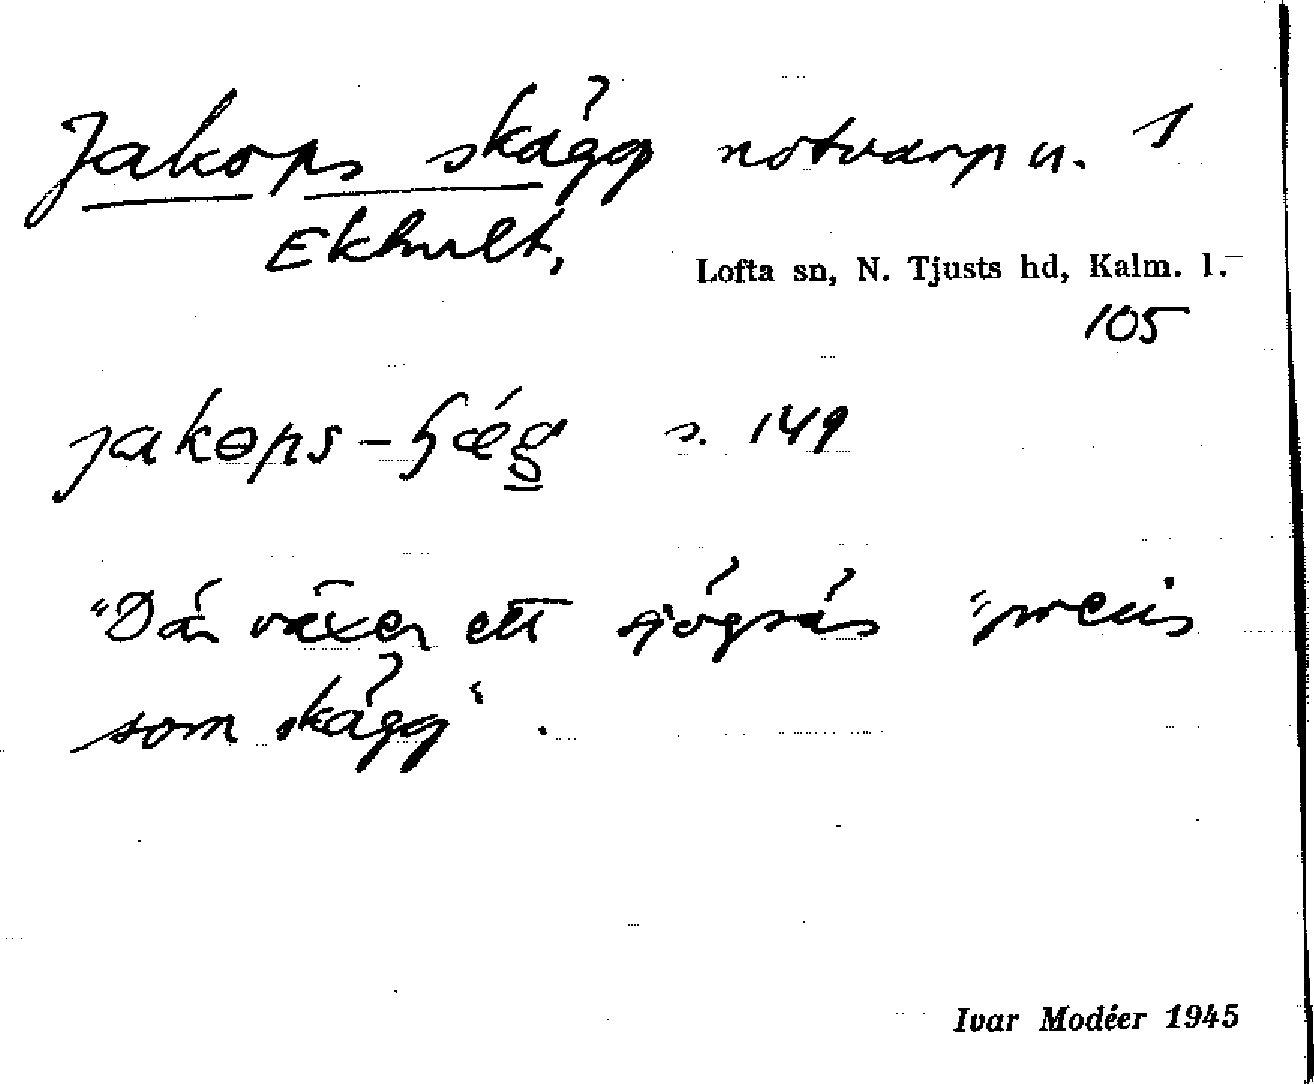 Jakops skägg notvarp u. 1
Ekhult,
Lofta sn, N. Tjusts hd, Kalm. l.
105
jakɵps-ʃǽg s. 149
"Där växer ett sjögräs "precis
som skägg".
Ivar Modéer 1945